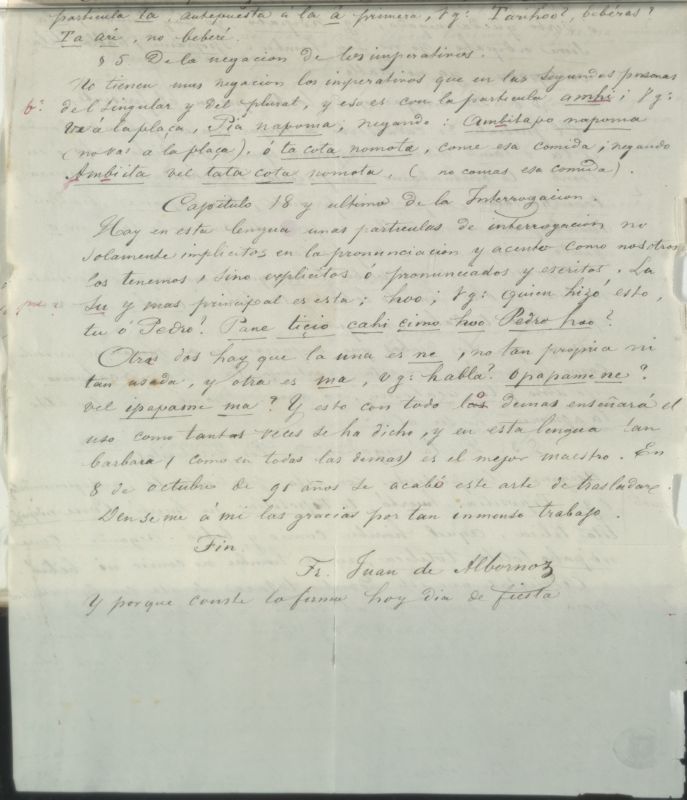 particula ta, antepuesta a la á primera, vg: Tanhoo?, beberas?
Ta aré, no beberé.
§ 5. De la negacion de los imperativos.
No tienen mas negacion los imperativos que en las segundas personas
6ª: del singular y del plural, y eso es con la particula ambi; Vg:
Ve á la plaça, Piá napoma; negando: Ambitapo napoma
(no vas a la plaça). ó ta cota nomota, come esa comida; negando
Ambiita vel tata cota nomota, (no comas esa comida).
Capitulo 18 y ultimo de la Interrogacion.
Hay en esta lengua unas particulas de interrogacion no
solamente implicitos en la pronunciacion y acento como nosotros
los tenemos, sino explicitos ó pronunciados y escritos. La
su y mas principal es esta; hoo; Vg: quien hizó esto,
tu ó Pedro? Pane ticio cahi cimo hoo Pedro hoo?
Otras dos hay que la una es ne, no tan propria ni
tan usada, y otra es ma, vg: habla? opapame ne?
vel ipapame ma? Y esto con todo los demas enseñará el
uso como tantas veces se ha dicho, y en esta lengua tan
barbara (como en todas las demas) es el mejor maestro. En
8 de octubre de 91 años se acabó este arte de trasladarse.
Dense me á mi las gracias por tan inmenso trabajo.
Fin.
Fr. Juan de Albornoz
Y porque conste lo firma hoy dia de fiesta